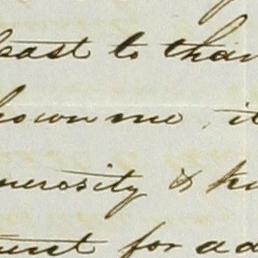 east to than
hown me, it
nerosity & ki
ent for ad